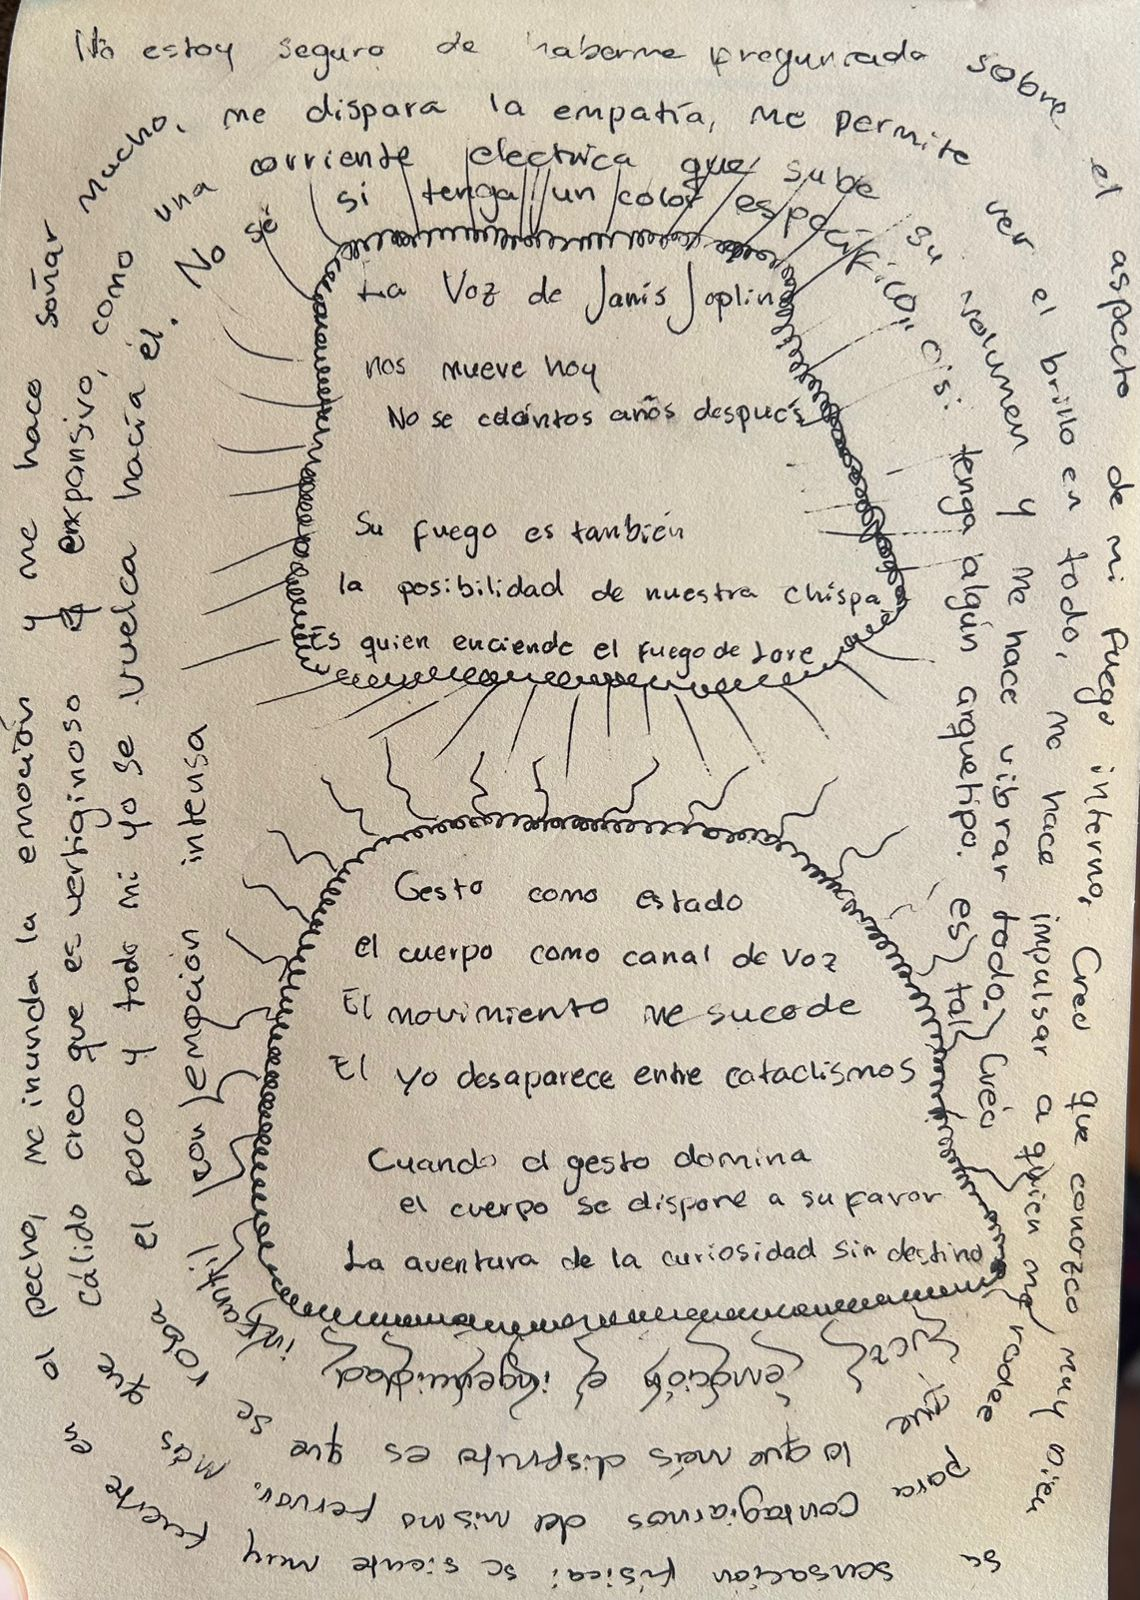 No estoy seguro de haberme preguntado sobre
el aspecto de mi fuego interno, Creo que conozco muy bien
su sensación física: se siente muy fuerte en
el pecho, me inunda la emoción y me hace soñar mucho,
me dispara la empatía, me permite
ver el brillo en todo, me hace impulsar a quien me rodee
para contagiarnos del mismo fervor. Más que
cálido creo que es vertiginoso expansivo, como una
corriente electrica que sube
su volumen y me hace vibrar todo. Créo que
lo que más disfruto es que se roba
el poco y todo mi yo se vuelca hacía él.
No sé si tenga un color específico, o si
tenga algún arquetipo. es tal vez
emoción e ingenuidad infantil
con emoción intensa
La Voz de Janis Joplin
nos mueve hoy
No se cuántos años después
Su fuego es también
la posibilidad de nuestra chispa
Es quien enciende el fuego de Lore
Gesto como estado
el cuerpo como canal de voz
El movimiento me sucede
El yo desaparece entre cataclismos
Cuando el gesto domina
el cuerpo se dispone a su favor
La aventura de la curiosidad sin destino